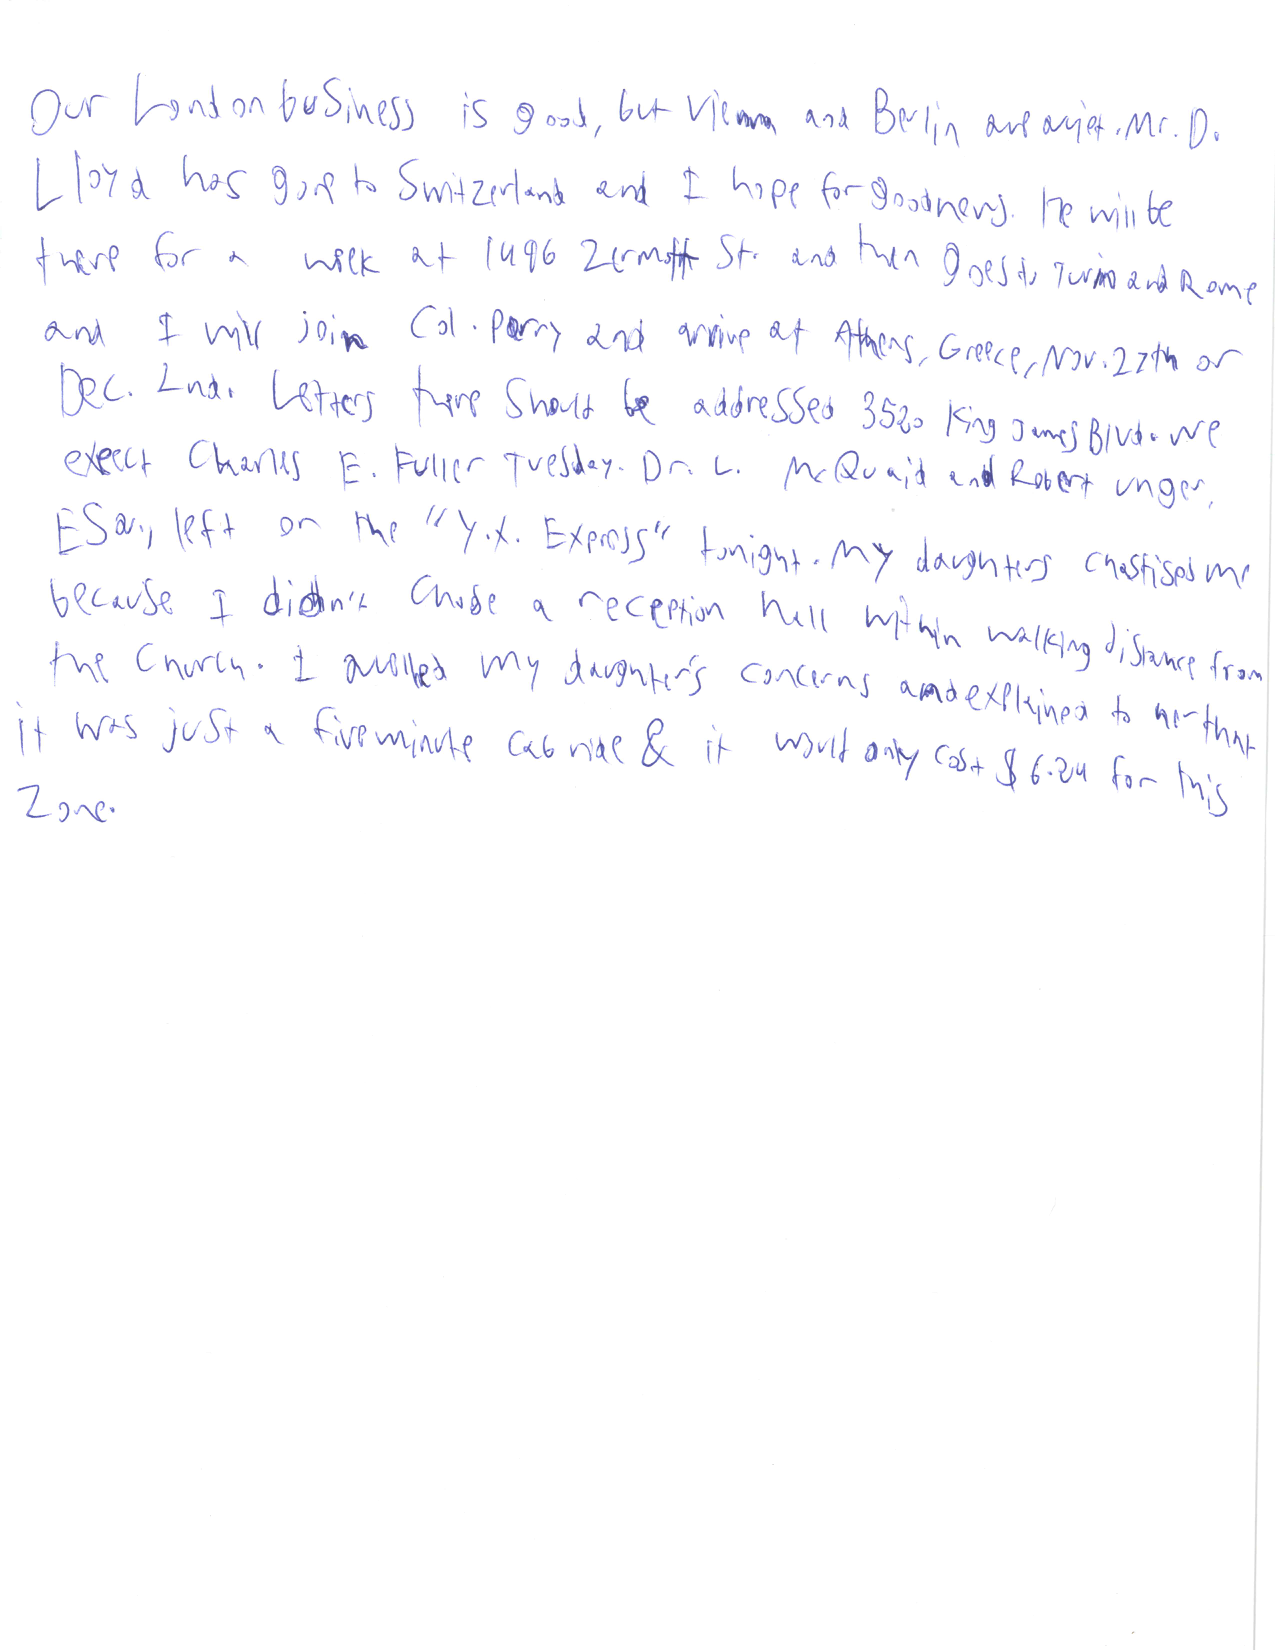 Our London business is good, but Vienna and Berlin are quiet. Mr. D.
Lloyd has gone to Switzerland and I hope for good news. He will be
there for a week at 1496 Zermott St. and then goes to Turin and Rome
and I will join Col. Parry and arrive at Athens, Greece, Nov. 27th or
Dec. 2nd. Letters there should be addressed 3520 King James Blvd. We
expect Charles E. Fuller Tuesday. Dr. L. McQuaid and Robert Unger,
Esq., left on the "Y.X. Express" tonight. My daughters chastised me
because I didn't chose a reception hall within walking distance from
the church. I quelled my daughter's concerns and explained to her that
it was just a five minute cab ride & it would only cost $6.24 for this
zone.